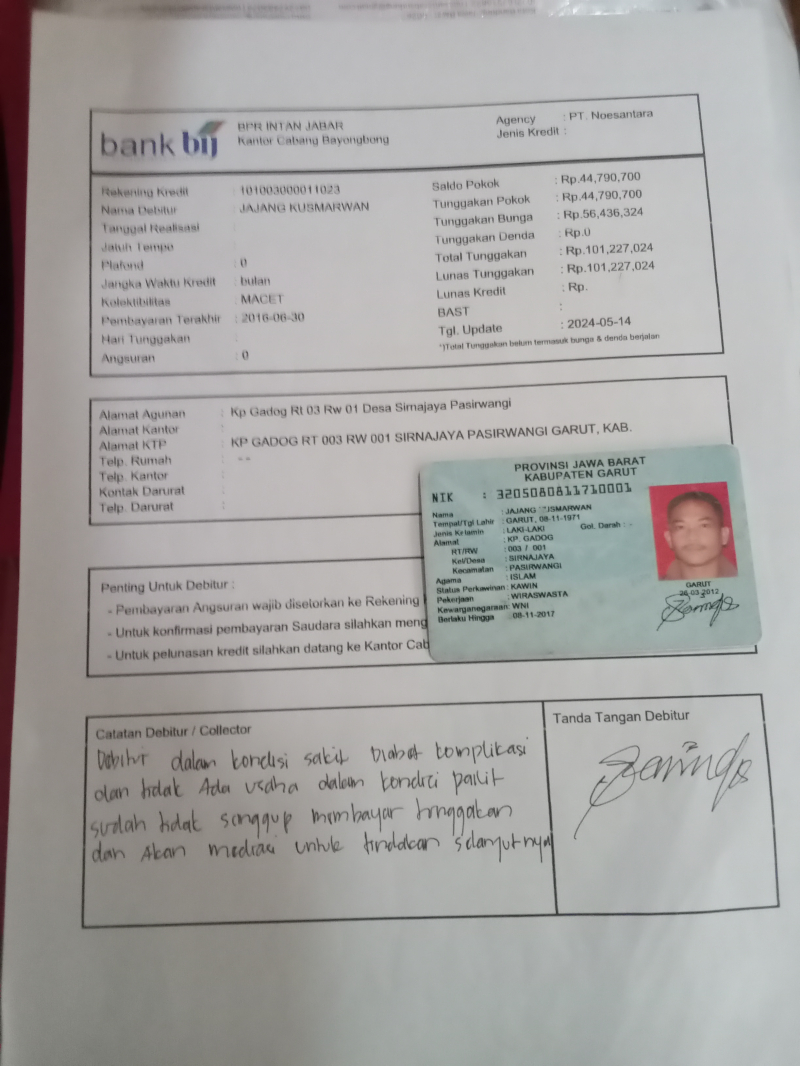 bank bij
BPR INTAN JABAR
Kantor Cabang Bayongbong
Agency : PT. Noesantara
Jenis Kredit :
Rekening Kredit : 101003000011023
Nama Debitur : JAJANG KUSMARWAN
Tanggal Realisasi :
Jatuh Tempo :
Plafond : 0
Jangka Waktu Kredit : bulan
Kolektibilitas : MACET
Pembayaran Terakhir : 2016-06-30
Hari Tunggakan :
Angsuran : 0
Saldo Pokok : Rp.44,790,700
Tunggakan Pokok : Rp.44,790,700
Tunggakan Bunga : Rp.56,436,324
Tunggakan Denda : Rp.0
Total Tunggakan : Rp.101,227,024
Lunas Tunggakan : Rp.101,227,024
Lunas Kredit : Rp.
BAST :
Tgl. Update : 2024-05-14
*)Total Tunggakan belum termasuk bunga & denda berjalan
Alamat Agunan : Kp Gadog Rt 03 Rw 01 Desa Sirnajaya Pasirwangi
Alamat Kantor :
Alamat KTP : KP GADOG RT 003 RW 001 SIRNAJAYA PASIRWANGI GARUT, KAB.
Telp. Rumah : --
Telp. Kantor :
Kontak Darurat :
Telp. Darurat :
PROVINSI JAWA BARAT
KABUPATEN GARUT
NIK : 3205080811710001
Nama : JAJANG USMARWAN
Tempat/Tgl Lahir : GARUT, 08-11-1971
Jenis Kelamin : LAKI-LAKI Gol. Darah : -
Alamat : KP. GADOG
RT/RW : 003 / 001
Kel/Desa : SIRNAJAYA
Kecamatan : PASIRWANGI
Agama : ISLAM
Status Perkawinan : KAWIN
Pekerjaan : WIRASWASTA
Kewarganegaraan : WNI
Berlaku Hingga : 08-11-2017
GARUT
26-03-2012
Penting Untuk Debitur :
- Pembayaran Angsuran wajib disetorkan ke Rekening
- Untuk konfirmasi pembayaran Saudara silahkan meng
- Untuk pelunasan kredit silahkan datang ke Kantor Cab
Catatan Debitur / Collector
Debitur dalam kondisi sakit Diabet komplikasi
dan tidak Ada usaha dalam kondisi pailit
sudah tidak sanggup membayar tunggakan
dan Akan mediasi untuk tindakan selanjutnya
Tanda Tangan Debitur